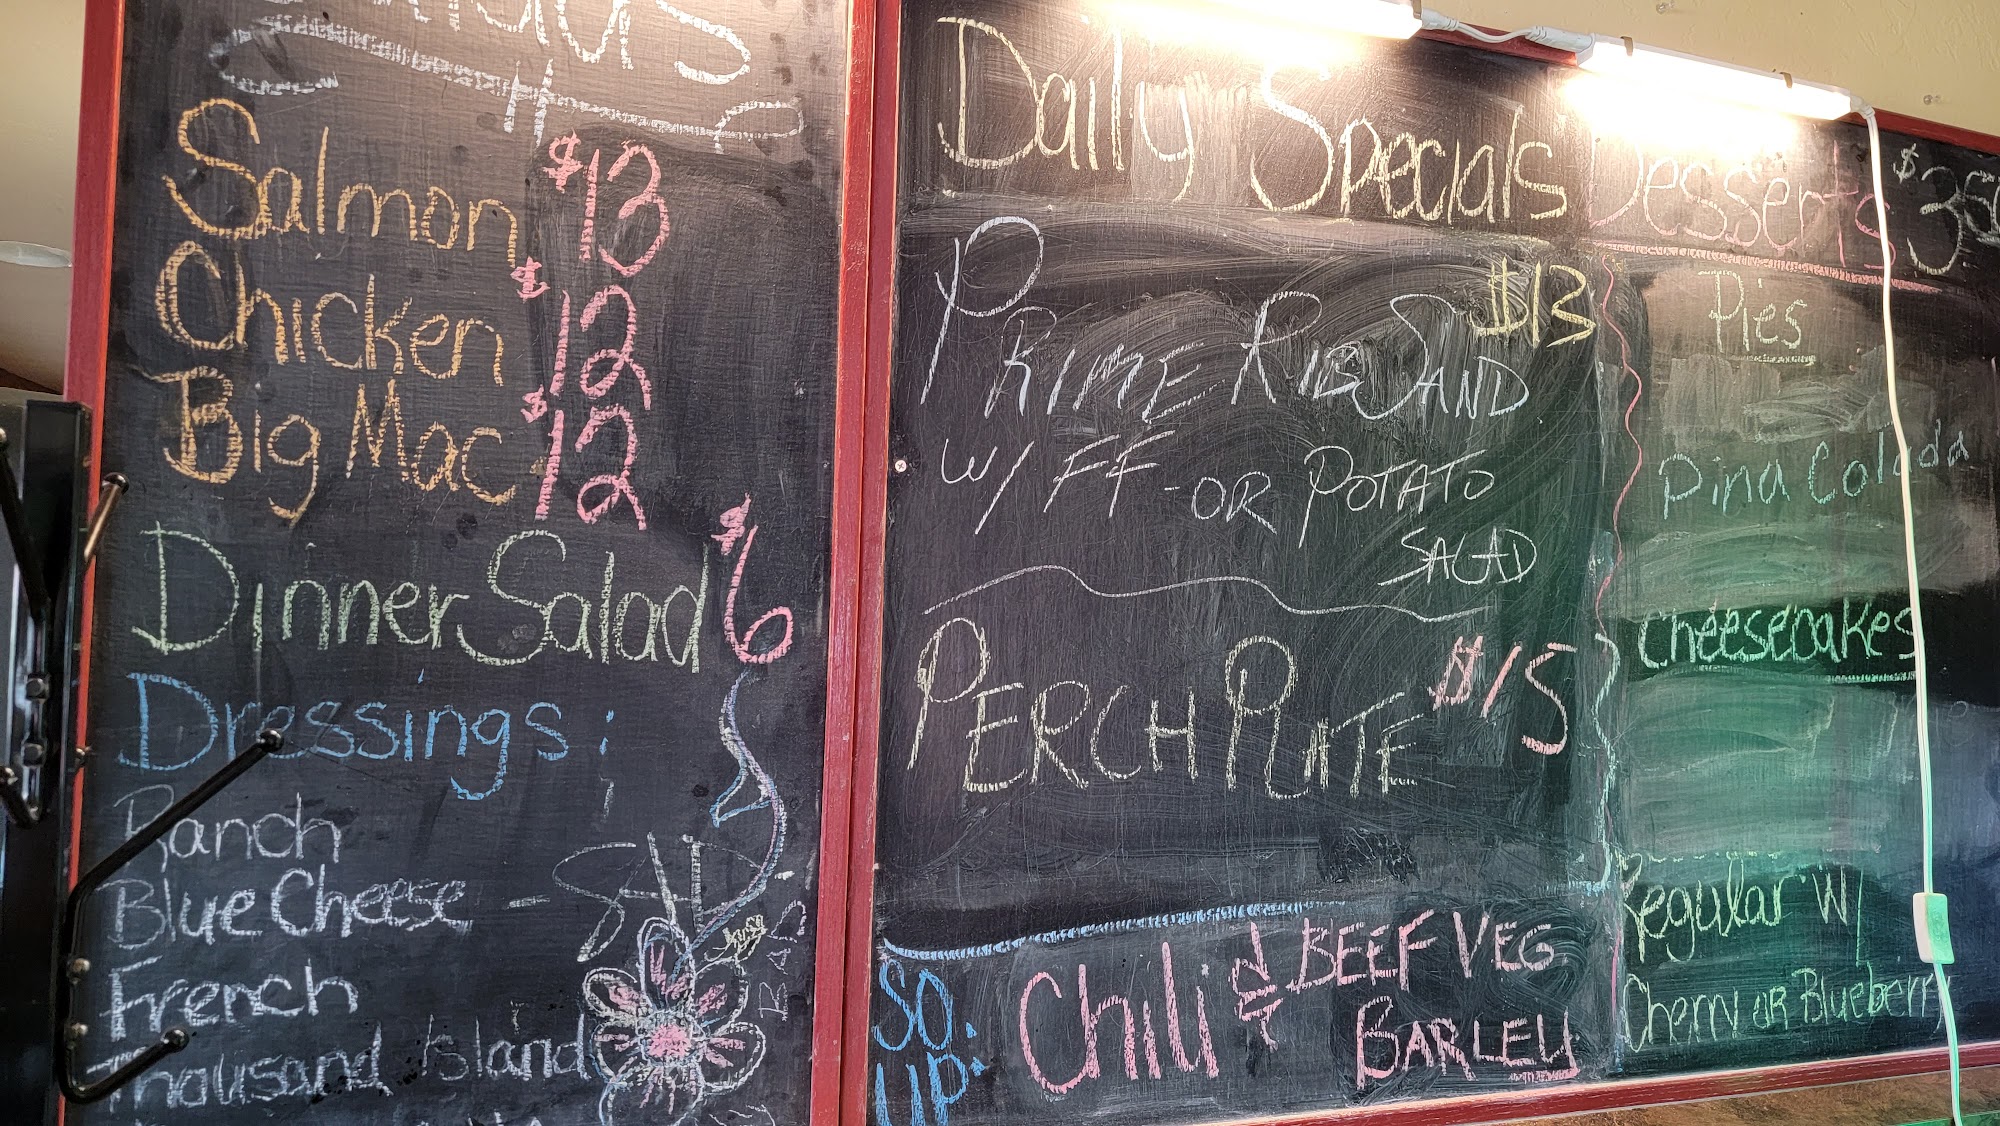 Salmon $13
Chicken $12
Big Mac $12
Dinner Salad $6
Dressings:
Ranch
Blue Cheese -
French
Thousand Island
Daily Specials
Prime Rib Sand $13
w/ FF - or Potato
Salad
Perch Plate $15
SO. Chili & Beef Veg
UP: Barley
Desserts $350
Pies
Pina Colada
Cheesecakes
Regular W/
Cherry or Blueberry